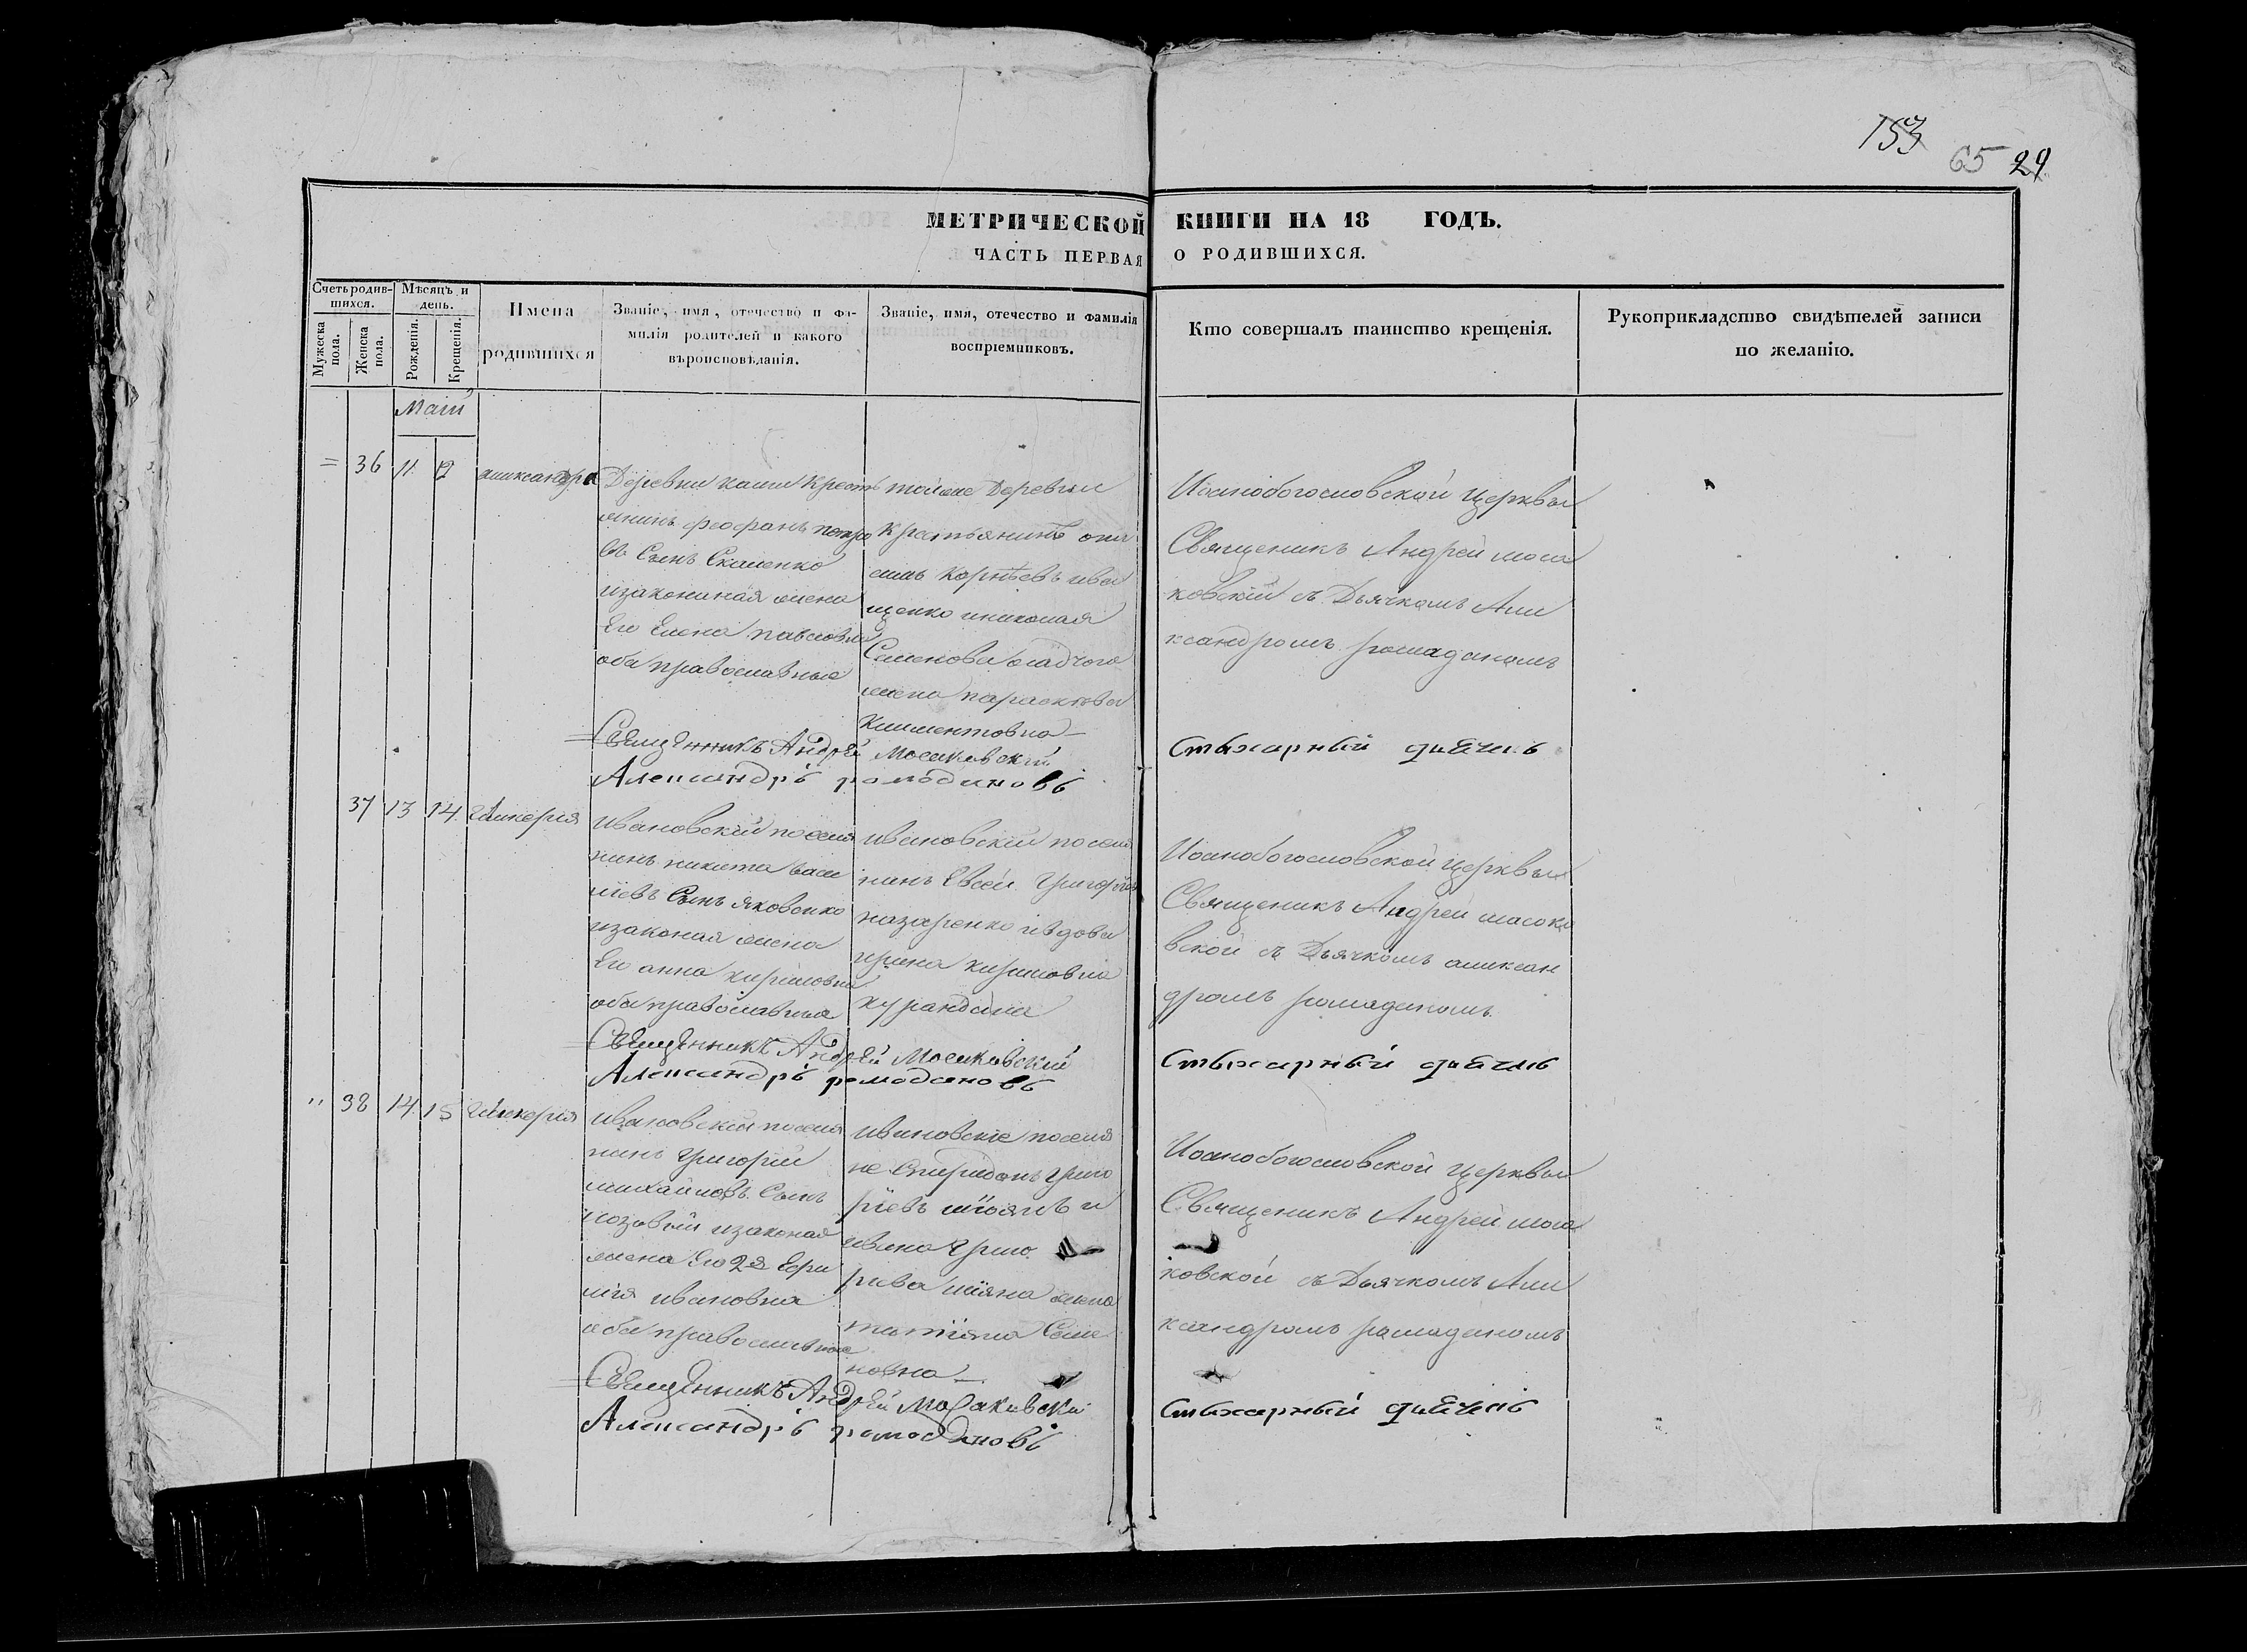 153
65 29
МЕТРИЧЕСКОЙ КНИГИ НА 18 ГОДЪ.
ЧАСТЬ ПЕРВАЯ О РОДИВШИХСЯ.
Счетъ родив-
шихся.
Мужеска
пола.
Женска
пола.
Мѣсяцъ и
день.
Рожденія.
Крещенія.
Имена
родившихся
Званіе, имя, отечество и фа-
милія родителей и какого
вѣроисповѣданія.
Званіе, имя, отечество и фамилія
воспріемниковъ.
Кто совершалъ таинство крещенія.
Рукоприкладство свидѣтелей записи
по желанію.
Маій
= 36 11 12
аликсандра
Деревни Крестъ
янинъ феофанъ петро
въ Сынъ
изаконная жена
Его Елена павловна
оби православные
тойже Деревни
Крестьянинъ
Корнѣевъ ива
щенко иниколая
Семенова
жена параскова
Климентовна
Иоанобогословской Церквы
Священикъ Андрей моса
ковскій съ Дьячкомъ Али
ксандромъ ромаданомъ
Священникъ Андрей Мосаковскій
Александръ ромодановъ
Стыхарный дьячекъ
37 13 14 Гликерия
ивановскій поселя
нинъ никита васи
лїевъ Сынъ яковенко
изаконая жена
Его анна кириловна
оби православныя
ивановскій поселя
нинъ Евсей Григорїевъ
назаренко ивдова
ирина кириловна
Иоанобогословской Церквы
Священикъ Андрей масоко
вской съ Дьячкомъ аликсан
дромъ ромаданомъ
Священникъ Андрей Мосаковскій
Александръ ромодановъ
Стыхарный дьячекъ
" 38 14 15 Гликерия
ивановскій поселя
нинъ Григорий
михайловъ Сынъ
лозовый изаконая
жена Его 2я Ефи
мїя ивановна
оби православные
ивановскіе поселя
не Спиридонъ Григо
рїевъ и
ивана Григо
риева жена
татїяна Семе
новна
Иоанобогословской Церквы
Священикъ Андрей моса
ковской съ Дьячкомъ Али
ксандромъ ромаданомъ
Священникъ Андрей Мосаковскій
Александръ ромодановъ
Стыхарный дьячекъ